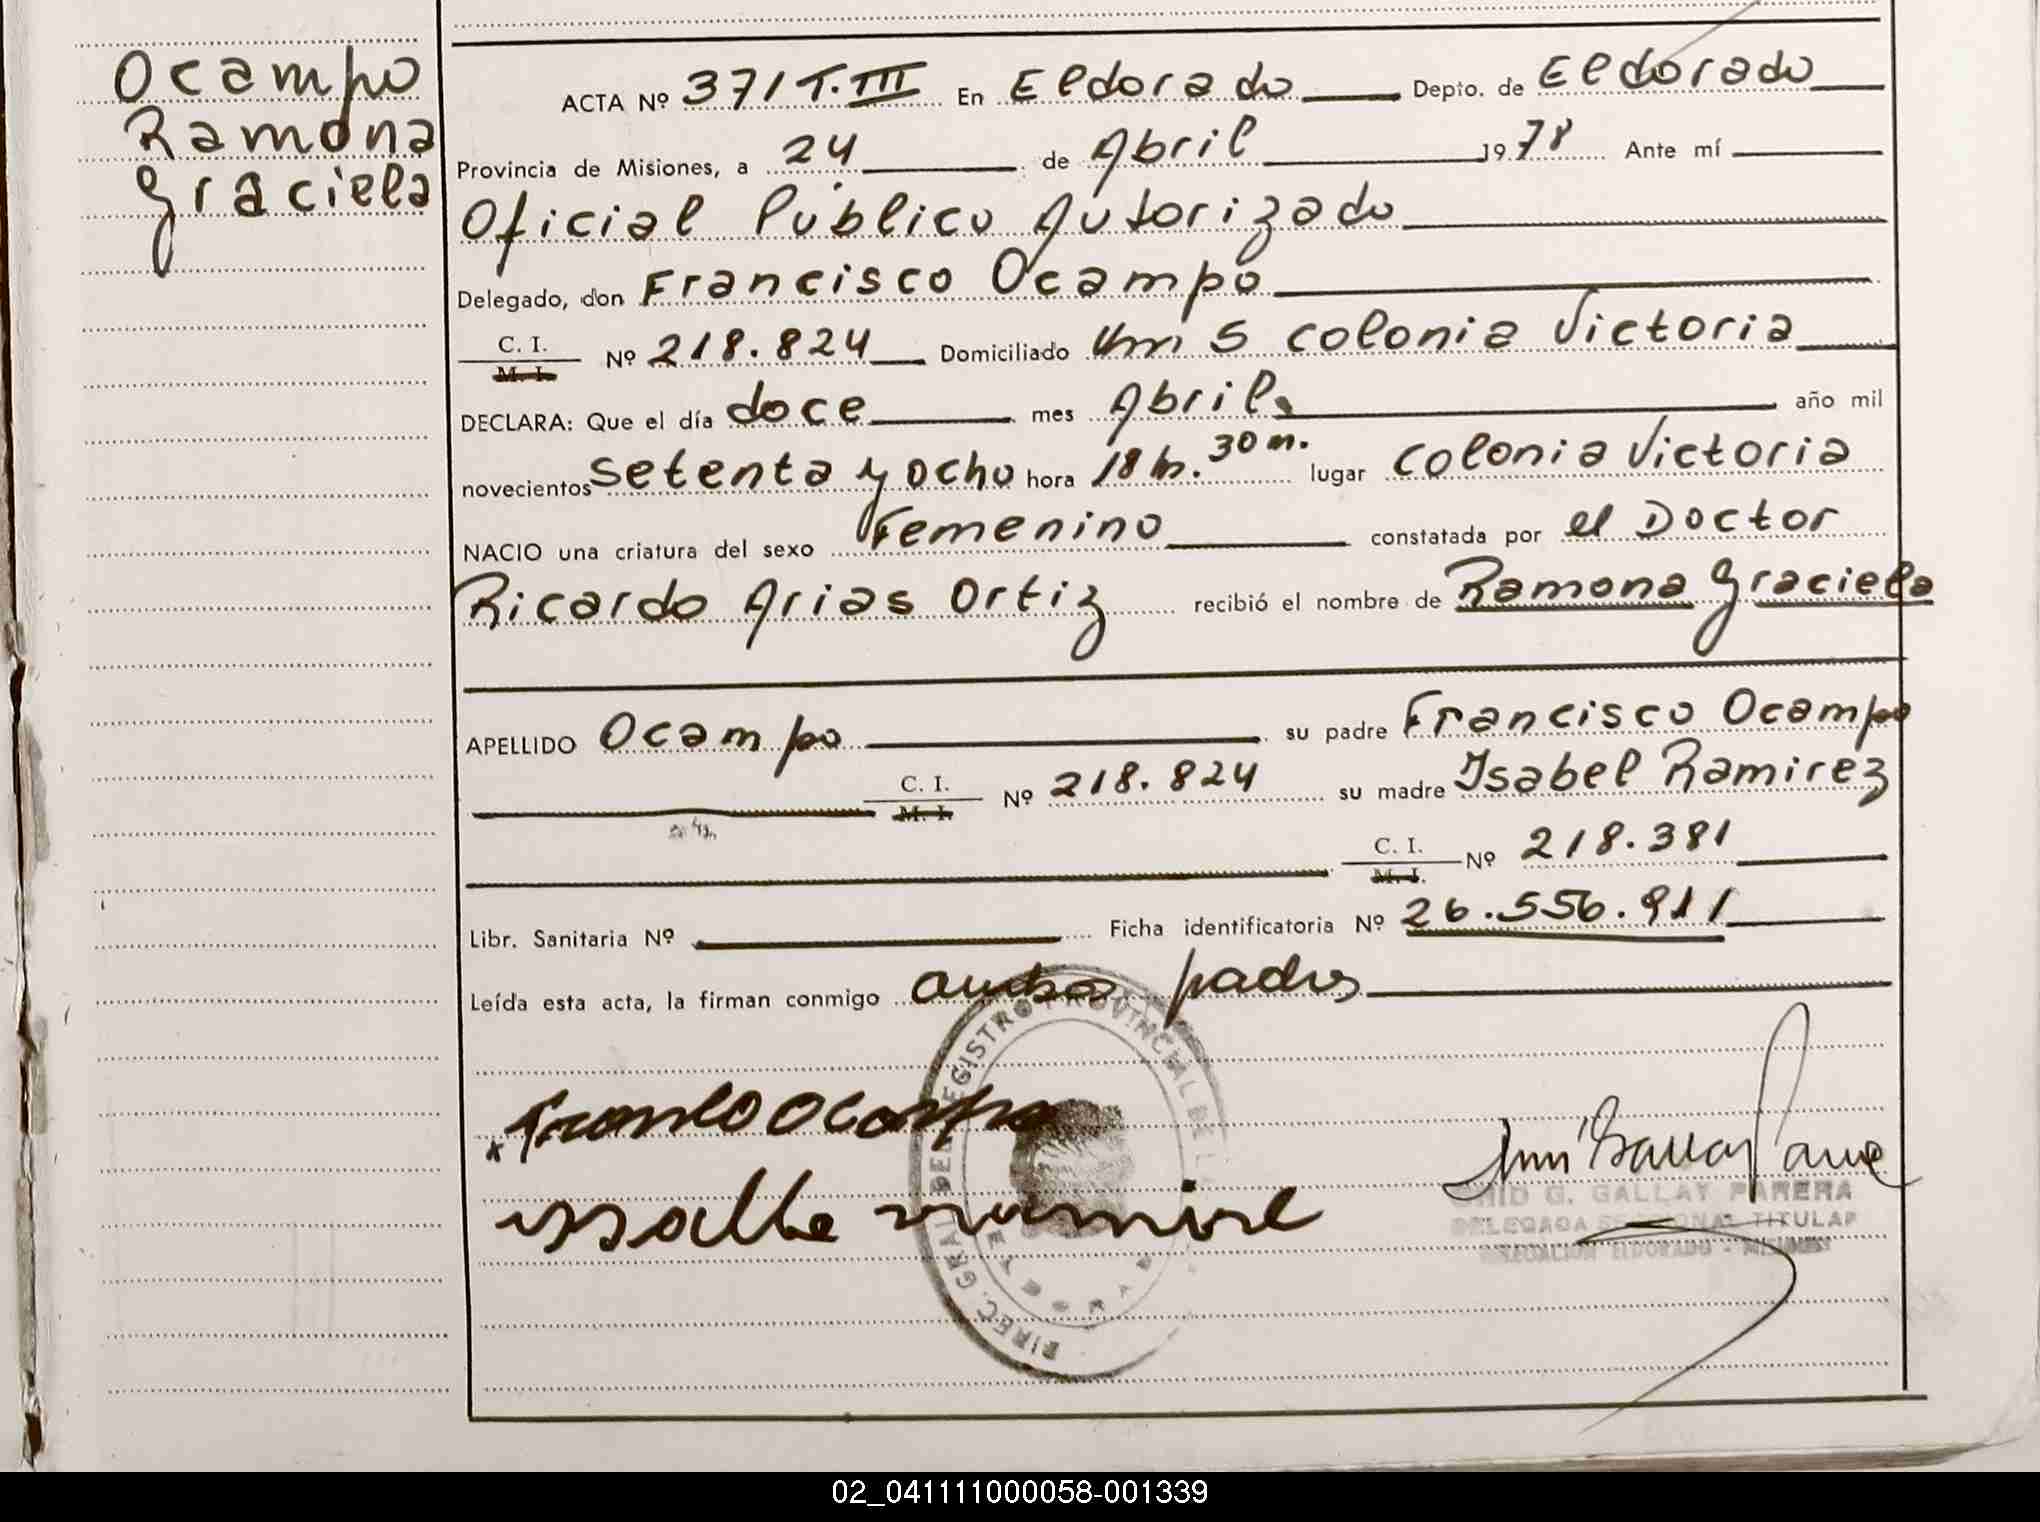 Ocampo
Ramona
Graciela
ACTA Nº 371 T. III En Eldorado Depto. de Eldorado
Provincia de Misiones, a 24 de Abril 1978 Ante mí
Oficial Público Autorizado
Delegado, don Francisco Ocampo
C. I.
M. I.
Nº 218.824 Domiciliado Km 5 Colonia Victoria
DECLARA: Que el día doce mes Abril año mil
novecientos setenta y ocho hora 18 h. 30 m. lugar Colonia Victoria
NACIO una criatura del sexo Femenino constatada por el Doctor
Ricardo Arias Ortiz recibió el nombre de Ramona Graciela
APELLIDO Ocampo su padre Francisco Ocampo
C. I.
M. I.
Nº 218.824 su madre Isabel Ramirez
C. I.
M. I.
Nº 218.381
Libr. Sanitaria Nº Ficha identificatoria Nº 26.556.911
Leída esta acta, la firman conmigo ambos padres
DIREC. GRAL. DEL REGISTRO PROVINCIAL DE L
x Ocampo
G. GALLAY PARERA
DELEGADA SECCIONAL TITULAR
DELEGACION ELDORADO - MISIONES
02_041111000058-001339